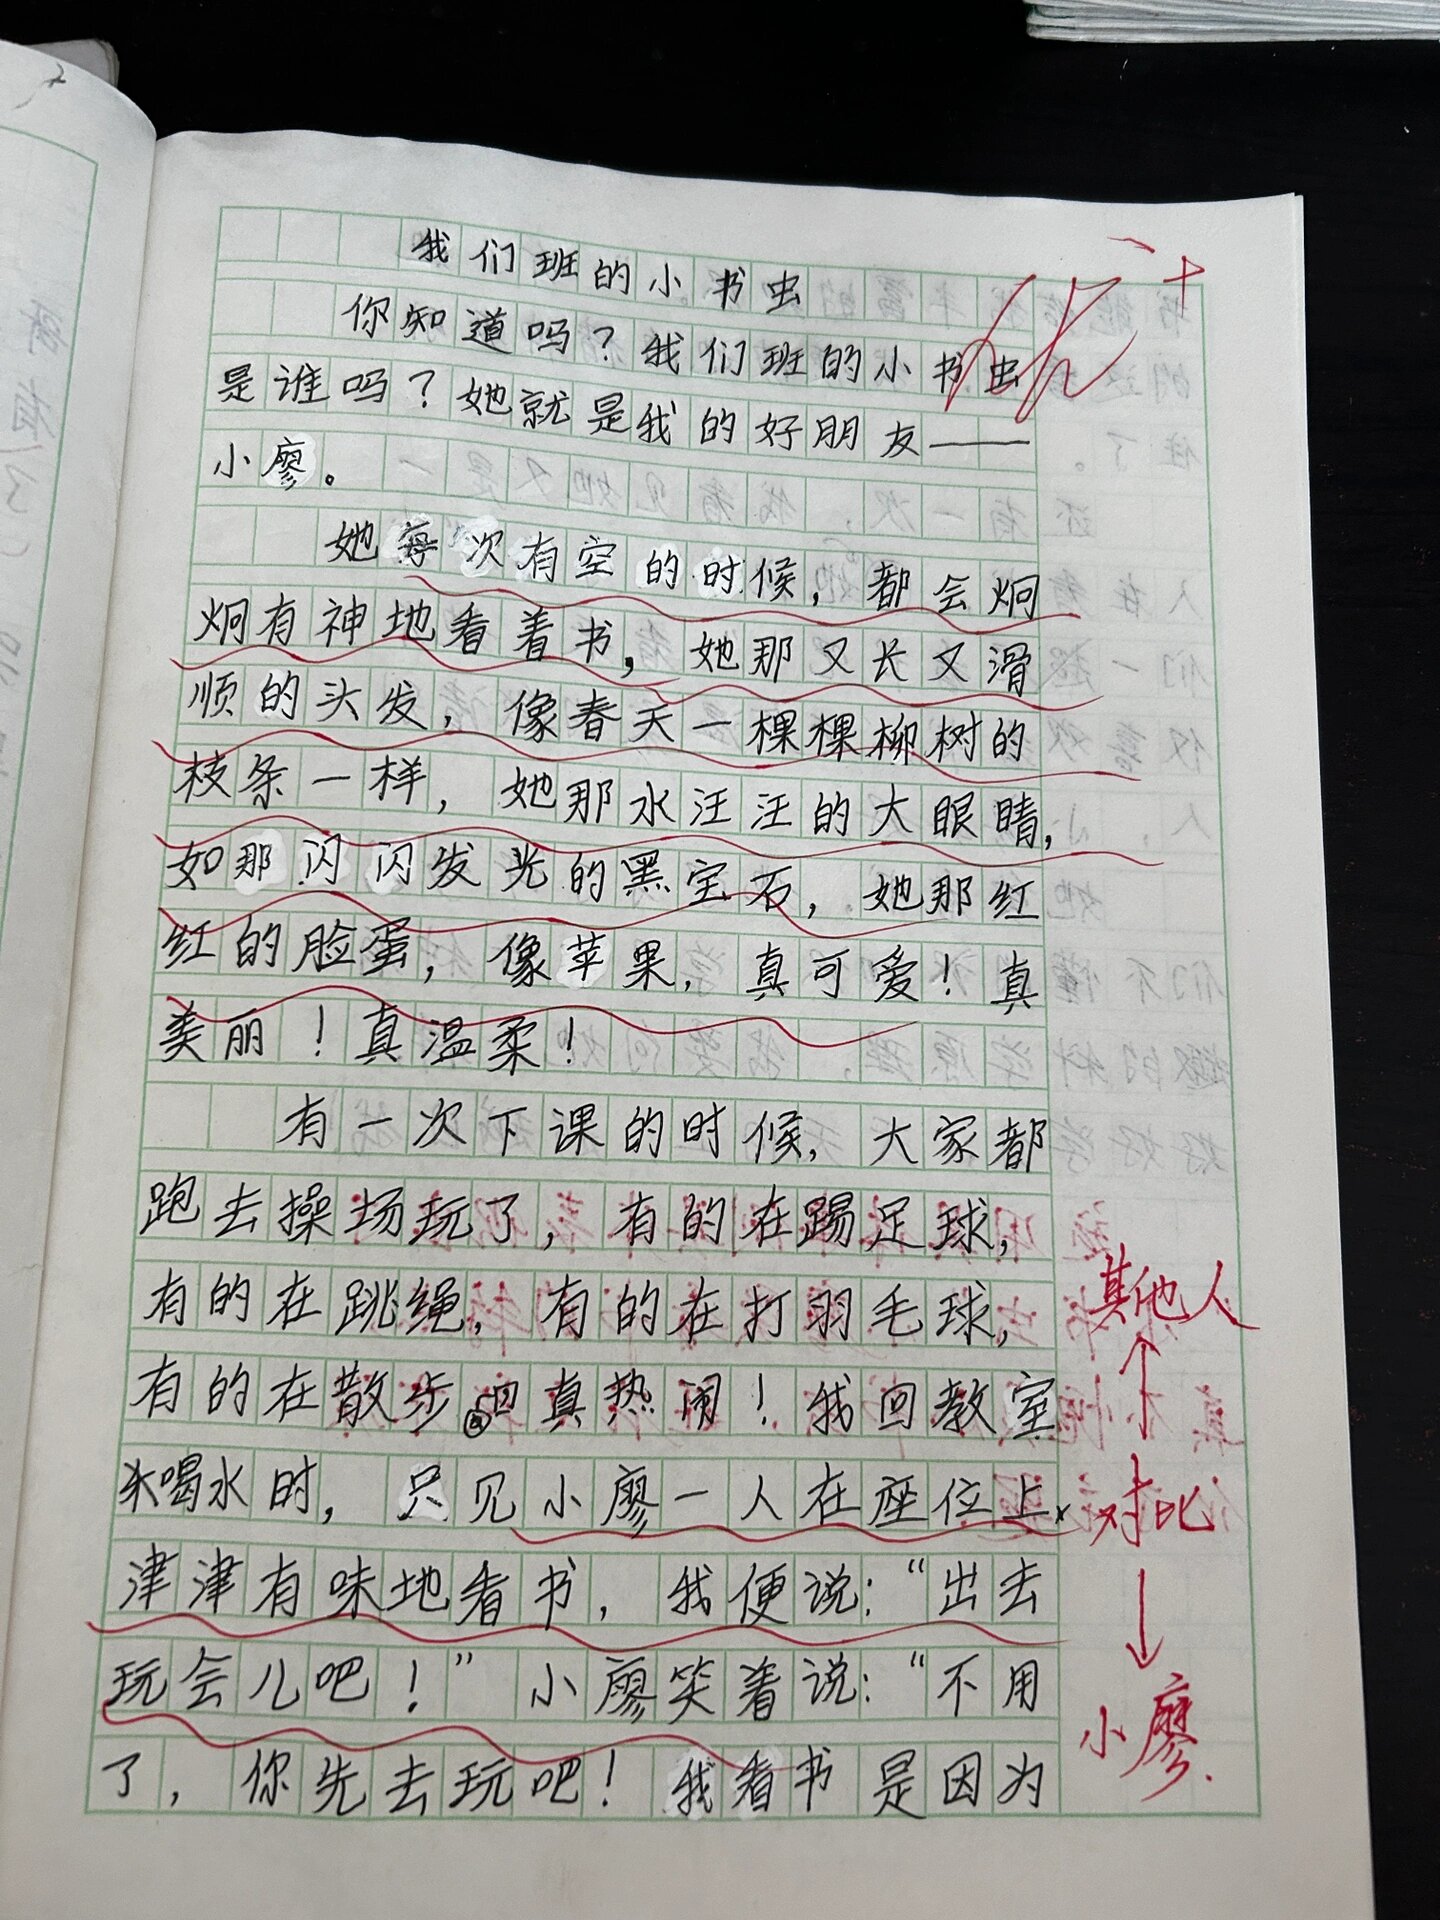 我们班的小书虫
你知道吗？我们班的小书虫
是谁吗？她就是我的好朋友——
小廖。
她每次有空的时候，都会炯
炯有神地看着书，她那又长又滑
顺的头发，像春天一棵棵柳树的
枝条一样，她那水汪汪的大眼睛，
如那闪闪发光的黑宝石，她那红
红的脸蛋，像苹果，真可爱！真
美丽！真温柔！
有一次下课的时候，大家都
跑去操场玩了，有的在踢足球，
有的在跳绳，有的在打羽毛球，
其他人
有的在散步。真热闹！我回教室
喝水时，只见小廖一人在座位上
对比
津津有味地看书，我便说：“出去
玩会儿吧！”小廖笑着说：“不用
小廖
了，你先去玩吧！我看书是因为